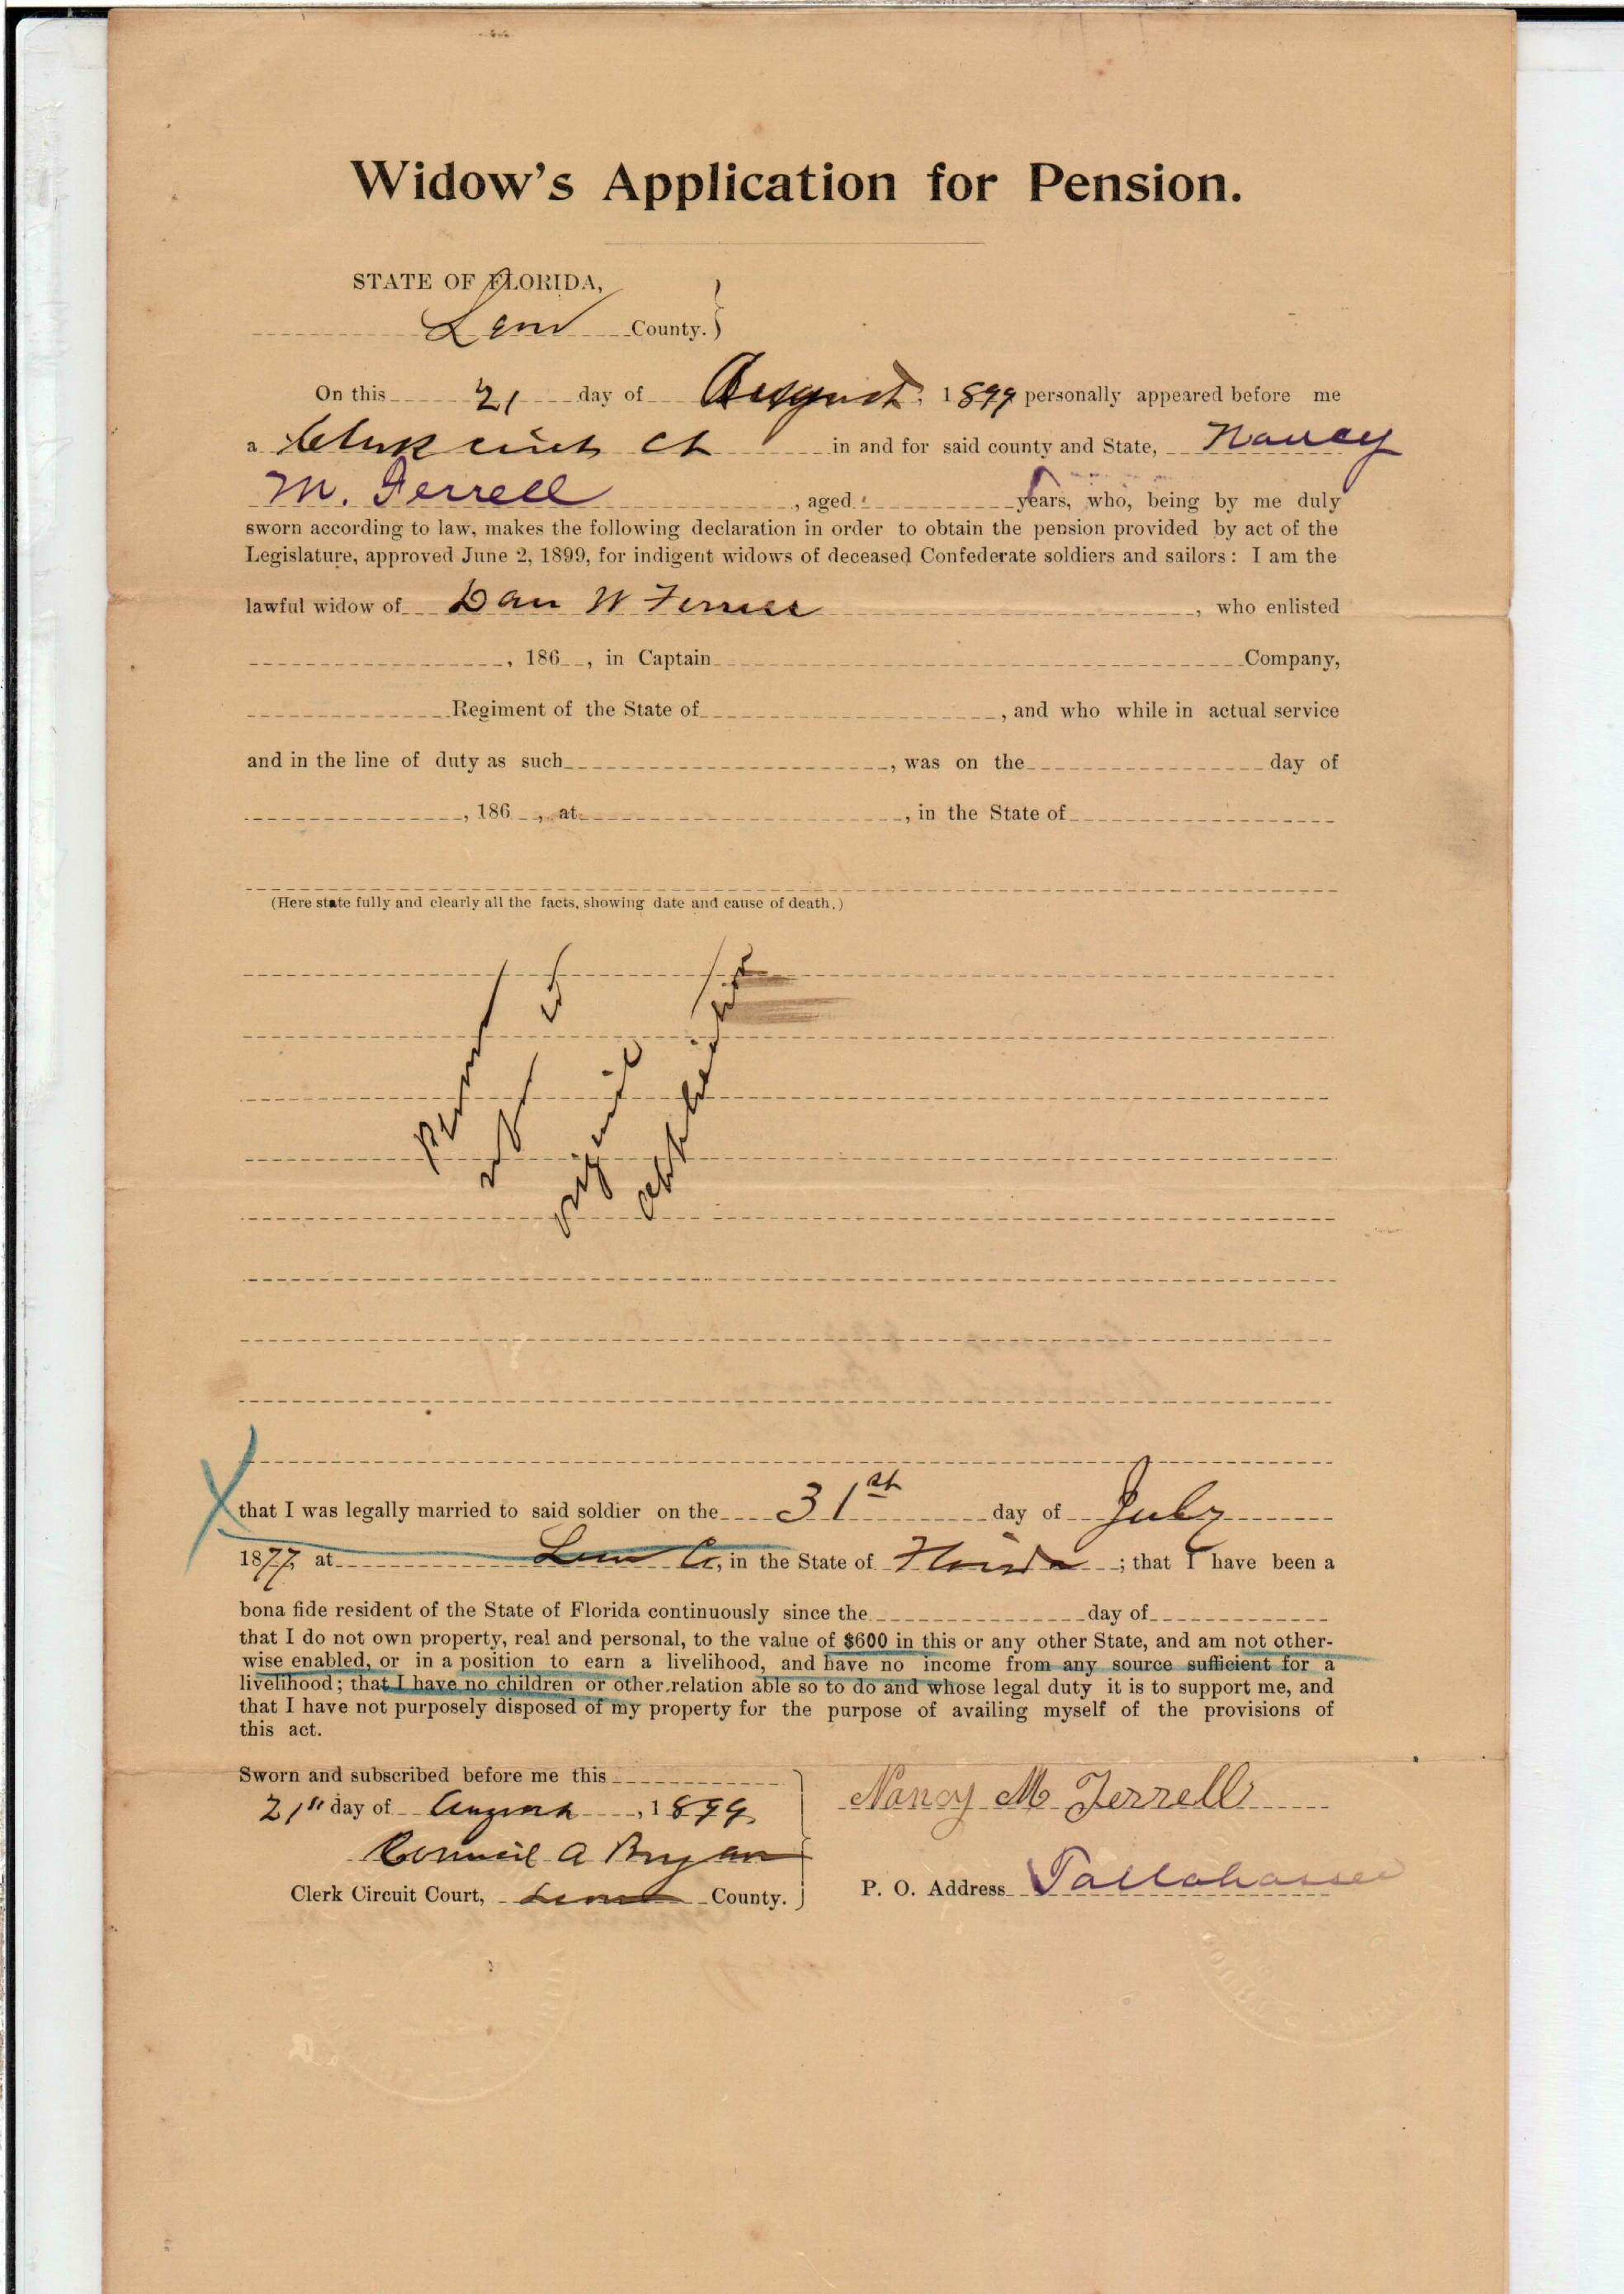 Widow's Application for Pension.
STATE OF FLORIDA,
Leon County.
On this 21 day of August, 1899 personally appeared before me
a Clerk Circuit Ct in and for said county and State, Nancy
M. Ferrell, aged years, who, being by me duly
sworn according to law, makes the following declaration in order to obtain the pension provided by act of the
Legislature, approved June 2, 1899, for indigent widows of deceased Confederate soldiers and sailors: I am the
lawful widow of Dan W Ferrell, who enlisted
, 186 , in Captain Company,
Regiment of the State of , and who while in actual service
and in the line of duty as such , was on the day of
, 186 , at , in the State of
(Here state fully and clearly all the facts, showing date and cause of death.)
original
that I was legally married to said soldier on the 31st day of July
1877, at Leon Co, in the State of Florida; that I have been a
bona fide resident of the State of Florida continuously since the day of
that I do not own property, real and personal, to the value of $600 in this or any other State, and am not other-
wise enabled, or in a position to earn a livelihood, and have no income from any source sufficient for a
livelihood; that I have no children or other relation able so to do and whose legal duty it is to support me, and
that I have not purposely disposed of my property for the purpose of availing myself of the provisions of
this act.
Sworn and subscribed before me this
21st day of August, 1899
Nancy M Ferrell
Council A Bryan
Clerk Circuit Court, Leon County.
P. O. Address Tallahassee